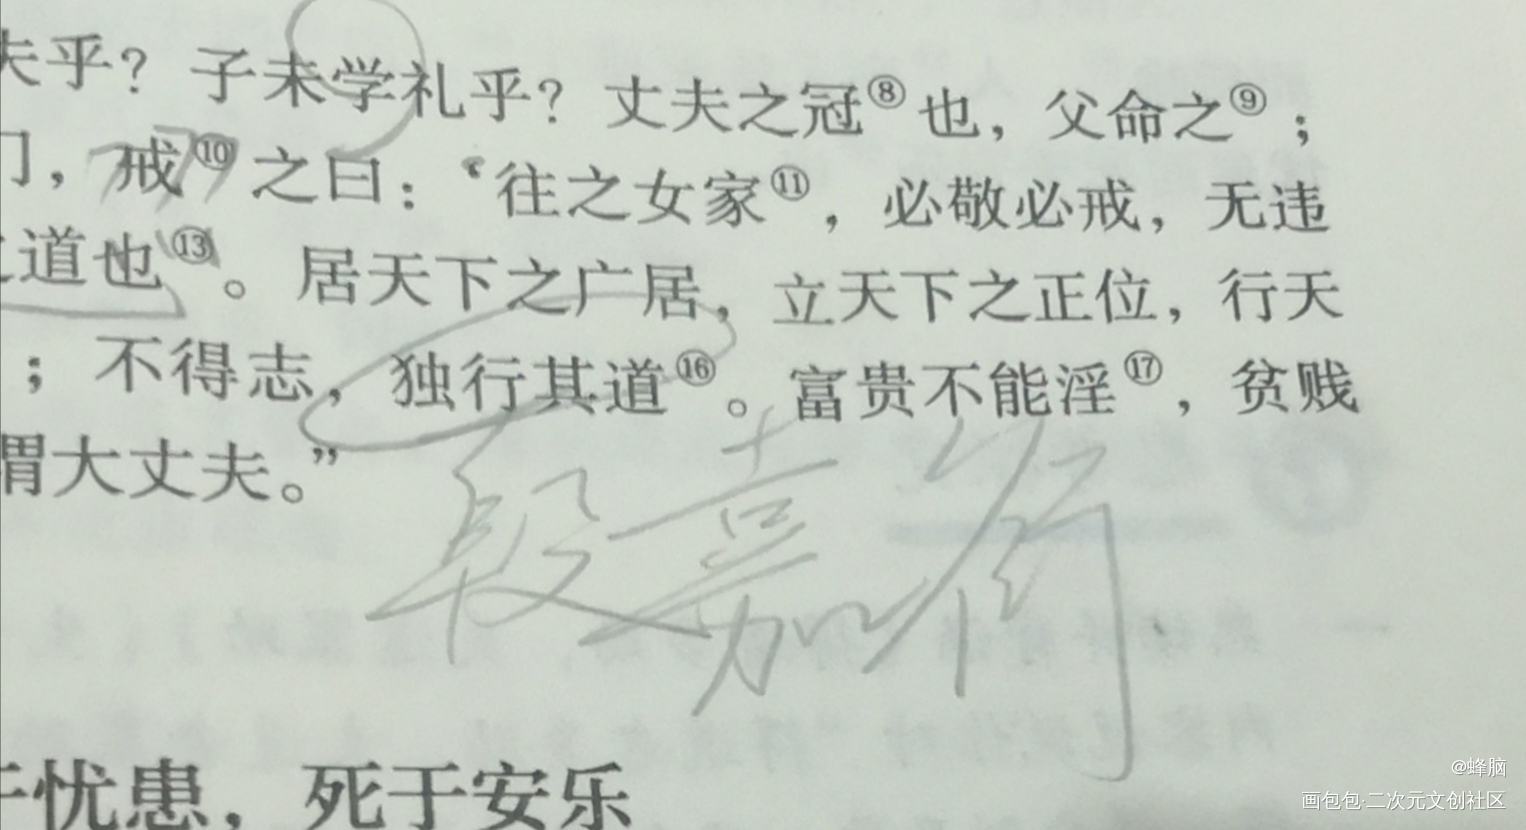 夫乎？子未学礼乎？丈夫之冠⑧也，父命之⑨；
门，戒⑩之曰：‘往之女家⑪，必敬必戒，无违
之道也⑬。居天下之广居，立天下之正位，行天
；不得志，独行其道⑯。富贵不能淫⑰，贫贱
谓大丈夫。”
段嘉衍
于忧患，死于安乐
@蜂脑
画包包·二次元文创社区